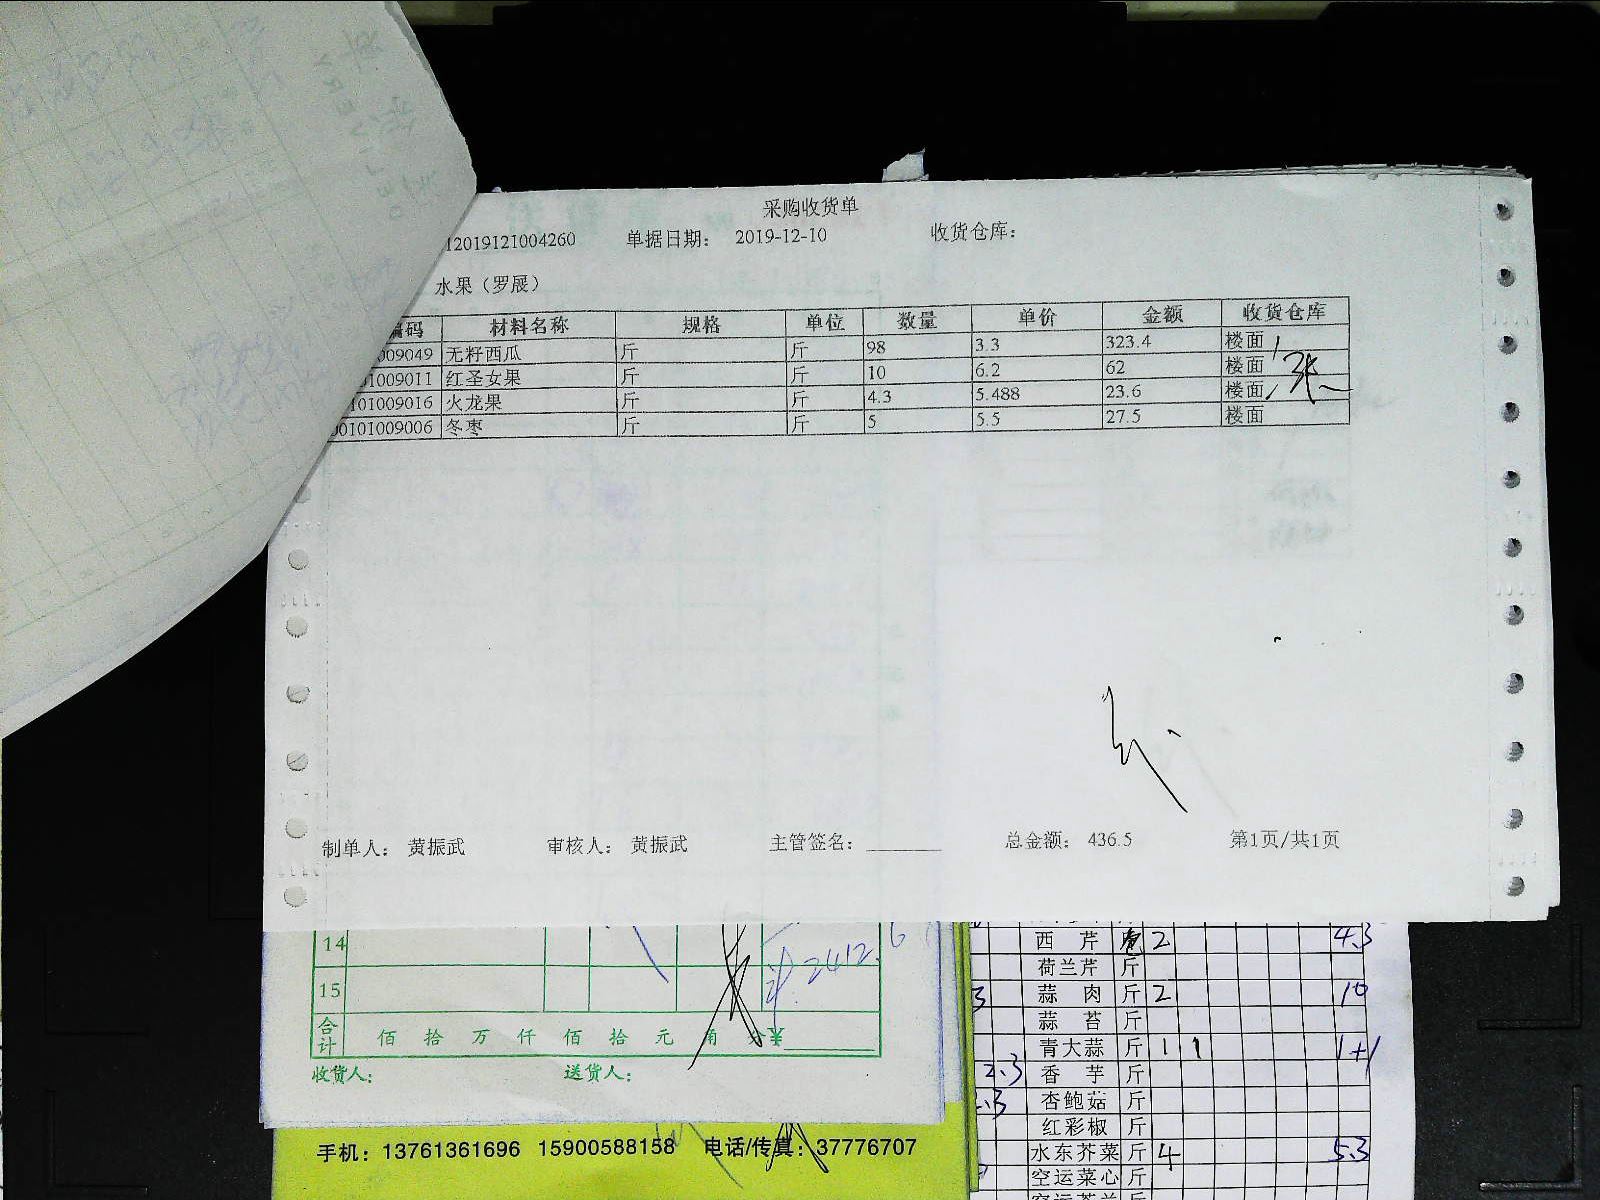 采购收货单
12019121004260 单据日期： 2019-12-10 收货仓库：
水果（罗晸）
编码 材料名称 规格 单位 数量 单价 金额 收货仓库
009049 无籽西瓜 斤 斤 98 3.3 323.4 楼面
01009011 红圣女果 斤 斤 10 6.2 62 楼面
101009016 火龙果 斤 斤 4.3 5.488 23.6 楼面
00101009006 冬枣 斤 斤 5 5.5 27.5 楼面
制单人： 黄振武 审核人： 黄振武 主管签名： 总金额： 436.5 第1页/共1页
14
15
合计 佰 拾 万 仟 佰 拾 元 角 分 ¥
收货人： 送货人：
手机：13761361696 15900588158 电话/传真：37776707
西芹 2 4.3
荷兰芹 斤
蒜肉 斤 2 10
蒜苔 斤
青大蒜 斤 1 1 1+1
2.3 香芋 斤
杏鲍菇 斤
红彩椒 斤
水东芥菜 斤 4 5.3
空运菜心 斤